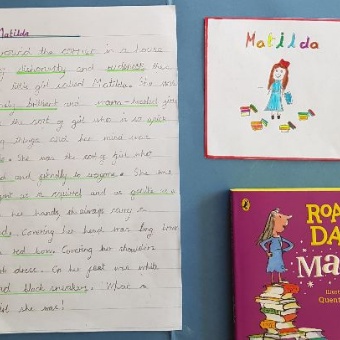 Matilda
around the corner in a house
dishonesty and
little girl called Matilda. She was
brilliant and warm-hearted
the sort of girl who is so quick
things and her mind was
She was the sort of girl who
and friendly to everyone. She was
as a squirrel and as gentle as a
her hands, she always carry a
Covering her head was long
red bow. Covering her shoulders
dress. On her feet were white
and black sneakers. What a
she was!
Matilda
ROA
DA
Ma
Illust
Quent